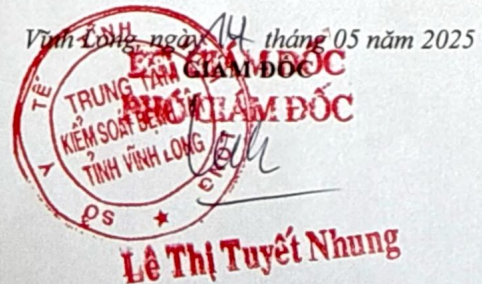 Vĩnh Long, ngày 14 tháng 05 năm 2025
GIÁM ĐỐC
GIÁM ĐỐC
PHÓ GIÁM ĐỐC
SỞ Y TẾ TỈNH VĨNH LONG
TRUNG TÂM
KIỂM SOÁT BỆNH
TỈNH VĨNH LONG
Lê Thị Tuyết Nhung